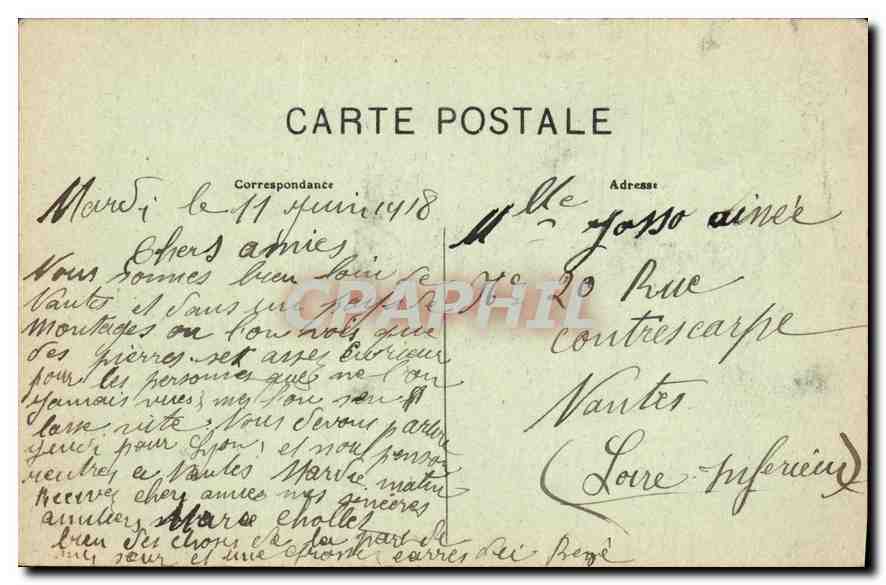 CARTE POSTALE
Correspondance
Mardi le 11 Juin 1918
Chers amies
Nous sommes bien loin de
Nantes et dans un pays de
montages ou l'on vois que
des pierres set asses curieux
pour les personnes que ne l'on
jamais vues; mes l'on sen
lasse vite. Nous devons partir
jeudi pour Lyon; et nous penson
rentres a Nantes Mardie matin
Recever cher amies mes sincères
amitiers Marie Chollet
bien des choses de la part de
ma sœur et une grosse carres dei René
Adresse
Mlle Josso ainée
20 Rue
Contrescarpe
Nantes
(Loire-Inferieure)
CPAPHIL